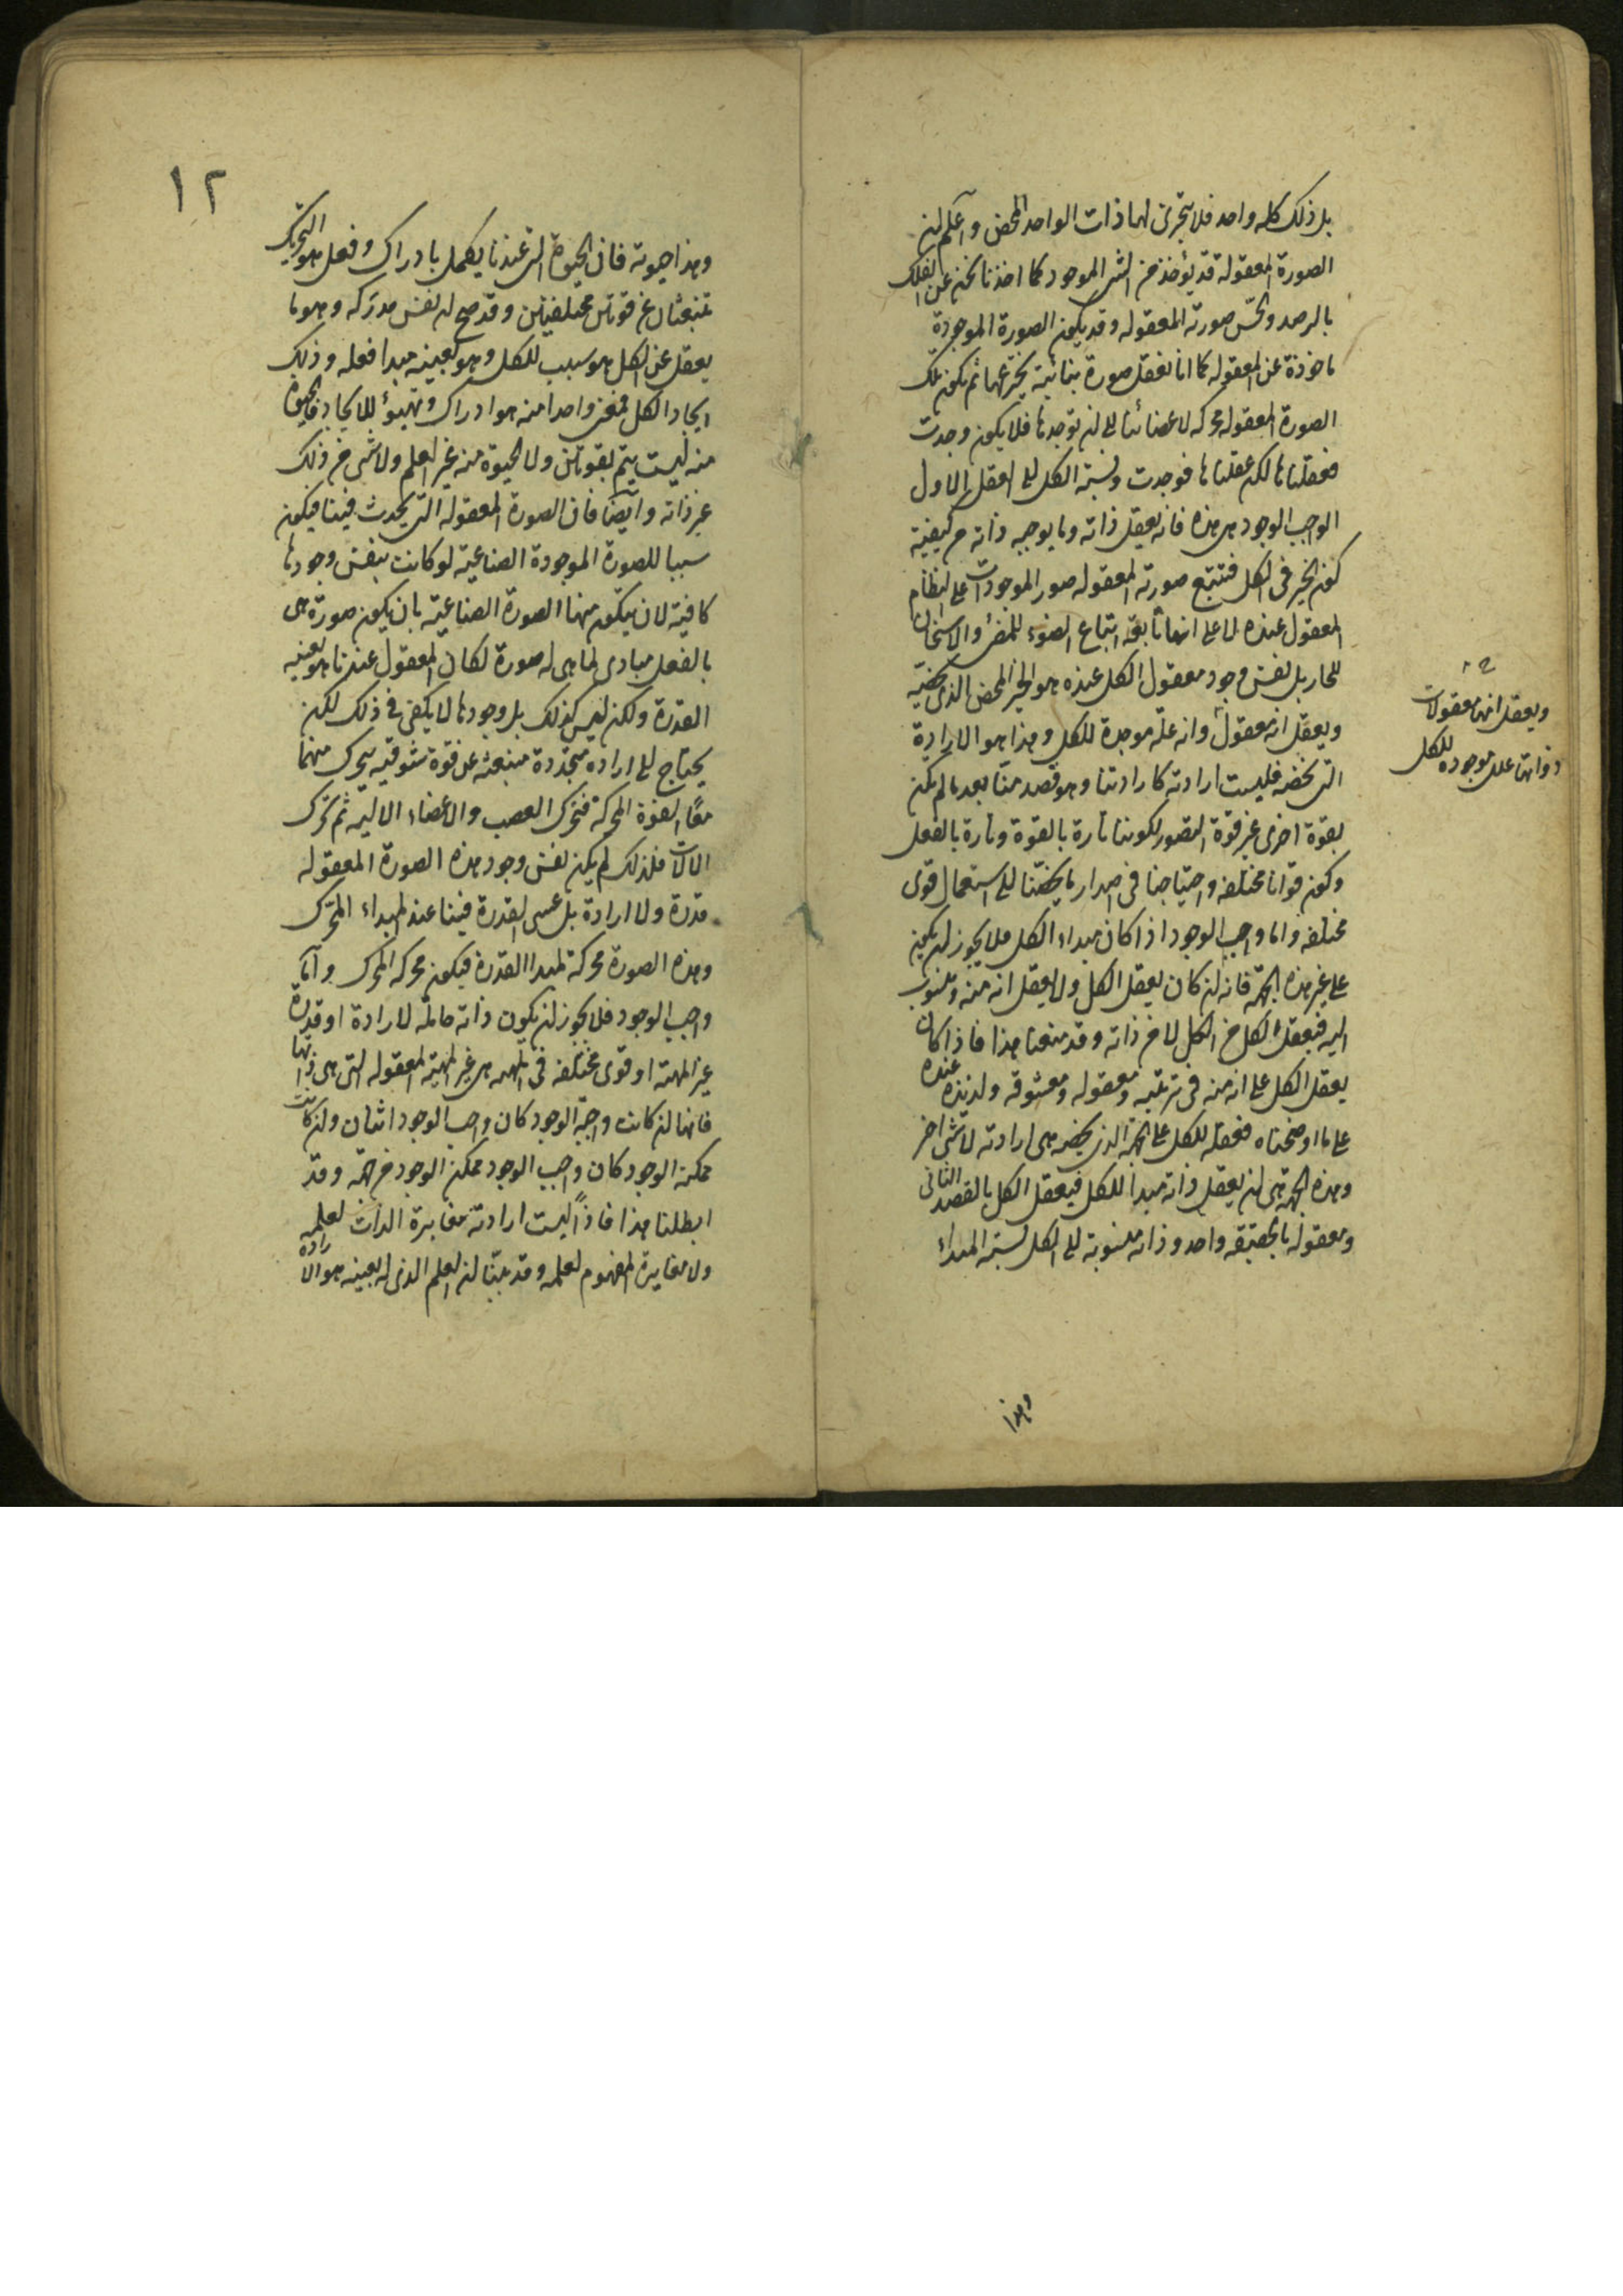 بل ذلك كله واحد فلا يتجزى لها ذات الواحد المحض واعلم ان
الصورة المعقولة قد يؤخذ من الشئ الموجود كما اخذنا نحن عن الفلك
بالرصد والحس صورته المعقوله وقد يكون الصورة الموجودة
ماخوذة عن المعقوله كما انا نعقل صورة بنائية نخترعها ثم يكون تلك
الصورة المعقوله محركه لاعضائنا الى ان نوجدها فلا يكون وجدت
فعقلناها لكن عقلناها فوجدت ونسبة الكل الى العقل الاول
الواجب الوجود هى هذه فانه يعقل ذاته وما يوجبه ذاته من كيفية
كون الخير فى الكل فتتبع صورته المعقوله صور الموجودات على النظام
المعقول عنده لا على انها تابعة اتباع الضوء للمضئ والاسخان
للحار بل نفس وجود معقول الكل عنده هو الخير المحض الذى يخصه
ويعقل انه معقول وانه علة موجدة للكل وهذا هو الارادة
التى تخصه فليست ارادته كارادتنا وهو قصد منا بعد ما لم يكن
بقوة اخرى غير قوة التصور لكوننا تارة بالقوة وتارة بالفعل
وكون قوانا مختلفه واحتياجنا فى اصدار ما يخصنا الى استعمال قوى
مختلفه واما واجب الوجود اذا كان مبداء الكل فلا يجوز ان يكون
على غير هذه الجهة فانه ان كان يعقل الكل ولا يعقل انه منه ومنسوب
اليه فيعقل الكل من الكل لا من ذاته وقد منعنا هذا فاذا كان
يعقل الكل على انه منه فى ترتيبه ومعقوله ومعشوقه ولذيذه عنده
على ما اوضحناه فعقله للكل على الجهة الذى يخصه هى ارادته لا شئ اخر
وهذه الجهة هى ان يعقل ذاته مبدا للكل فيعقل الكل بالقصد الثانى
ومعقوله بالحقيقه واحد وذاته منسوبة الى الكل نسبة المبداء
ويعقل انها معقولات
ذواتها علل موجوده للكل
وهذا
١٢
وهذا حيوته فان الحيوة التى عندنا يكمل بادراك وفعل هو التحريك
تنبعثان عن قوتين مختلفتين وقد صح ان نفس مدركه وهو ما
يعقل عن الكل هو سبب للكل وهو بعينه مبدا فعله وذلك
ايجاد الكل فمعنى واحد منه هو ادراك وتهيؤ للايجاد فالحيوة
منه ليست يتم بقوتين ولا الحيوة منه غير العلم ولا شئ من ذلك
غير ذاته وايضا فان الصورة المعقوله التى يحدث فينا فيكون
سببا للصورة الموجودة الصناعية لو كانت بنفس وجودها
كافية لان يتكون منها الصورة الصناعية بان يكون صورة هى
بالفعل مبادى لما هى له صورة لكان المعقول عندنا هو بعينه
القدرة ولكن ليس كذلك بل وجودها لا يكفى فى ذلك لكن
يحتاج الى اراده متجددة منبعثه عن قوة شوقيه يتحرك منهما
معا القوة المحركة فتحرك العصب والاعضاء الاليه ثم تحرك
الالات فلذلك لم يكن نفس وجود هذه الصورة المعقوله
قدرة ولا ارادة بل عسى القدرة فينا عند المبداء المحرك
وهذه الصورة محركة لمبدا القدرة فيكون محركه المحرك واما
واجب الوجود فلا يجوز ان يكون ذاته حامله لارادة او قدرة
غير المهية او قوى مختلفه فى المهيه هى غير المهية المعقوله التى هى ذاتها
فانها ان كانت واجبة الوجود كان واجب الوجود اثنان وان كانت
ممكنة الوجود كان واجب الوجود ممكن الوجود من جهة وقد
ابطلنا هذا فاذا ليست ارادته مغايرة الذات لعلمه
ولا مغايرة المفهوم لعلمه وقد بينا ان العلم الذى له بعينه هو الارادة